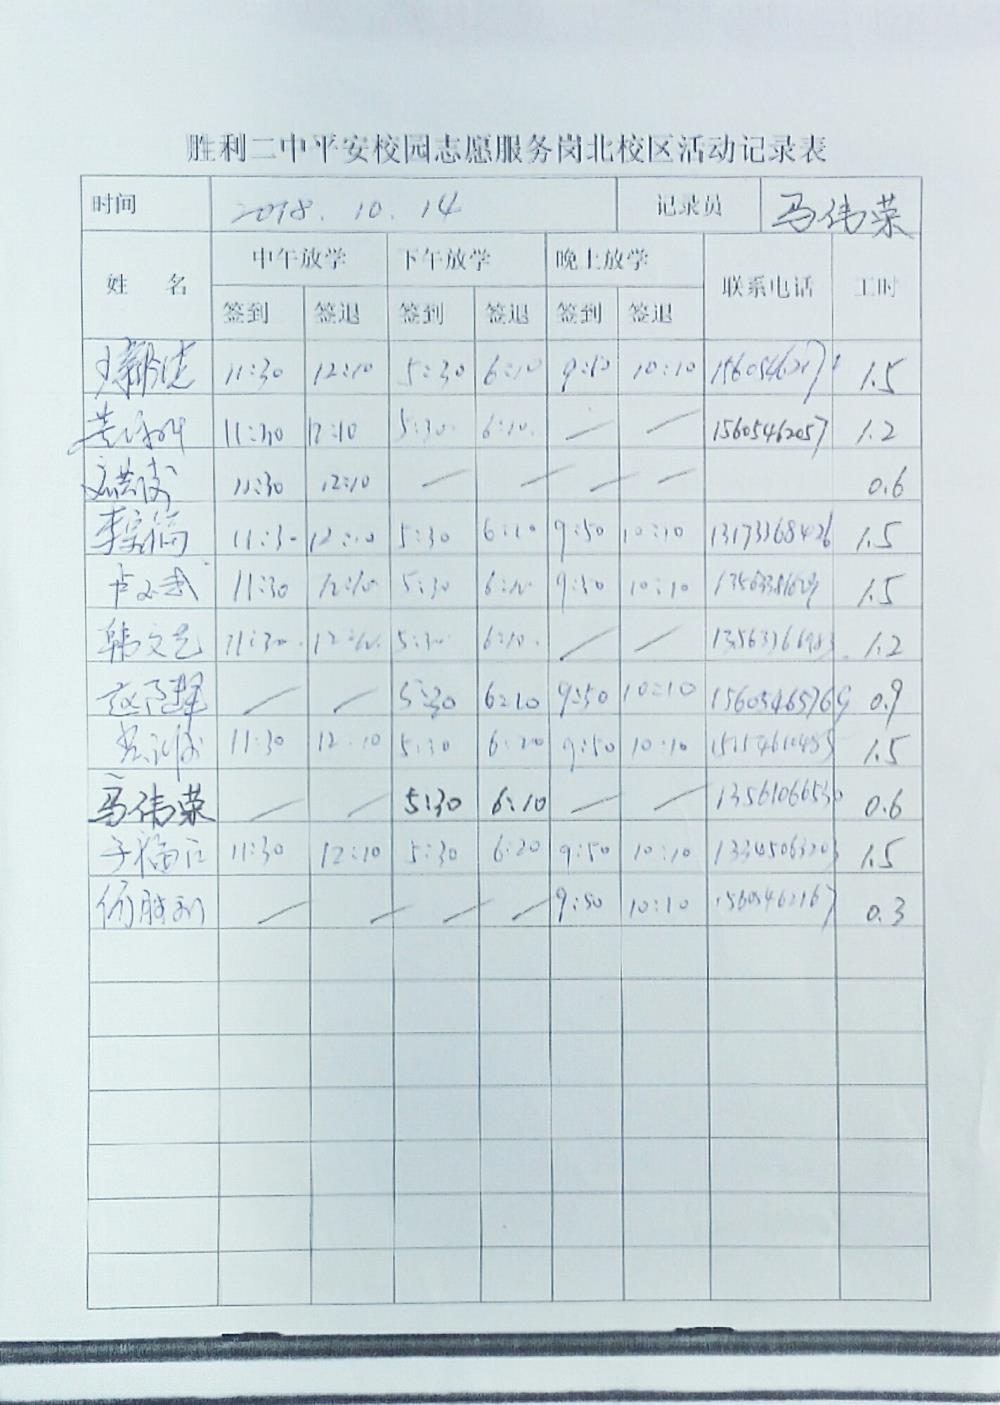 胜利二中平安校园志愿服务岗北校区活动记录表
时间 2018.10.14 记录员 马伟荣
姓 名 中午放学 下午放学 晚上放学 联系电话 工时
签到 签退 签到 签退 签到 签退
11:30 12:10 5:30 6:10 9:50 10:10 1.5
11:30 12:10 5:30 6:10 / / 15605462057 1.2
11:30 12:10 / / / / 0.6
李宗福 11:30 12:10 5:30 6:10 9:50 10:10 13173368426 1.5
11:30 12:10 5:30 6:10 9:50 10:10 1.5
韩文艺 11:30 12:10 5:30 6:10 / / 1.2
/ / 5:30 6:10 9:50 10:10 15605465769 0.9
11:30 12:10 5:30 6:20 9:50 10:10 1.5
马伟荣 / / 5:30 6:10 / / 13561066530 0.6
于福江 11:30 12:10 5:30 6:20 9:50 10:10 13345063203 1.5
/ / / / 9:50 10:10 15605462167 0.3